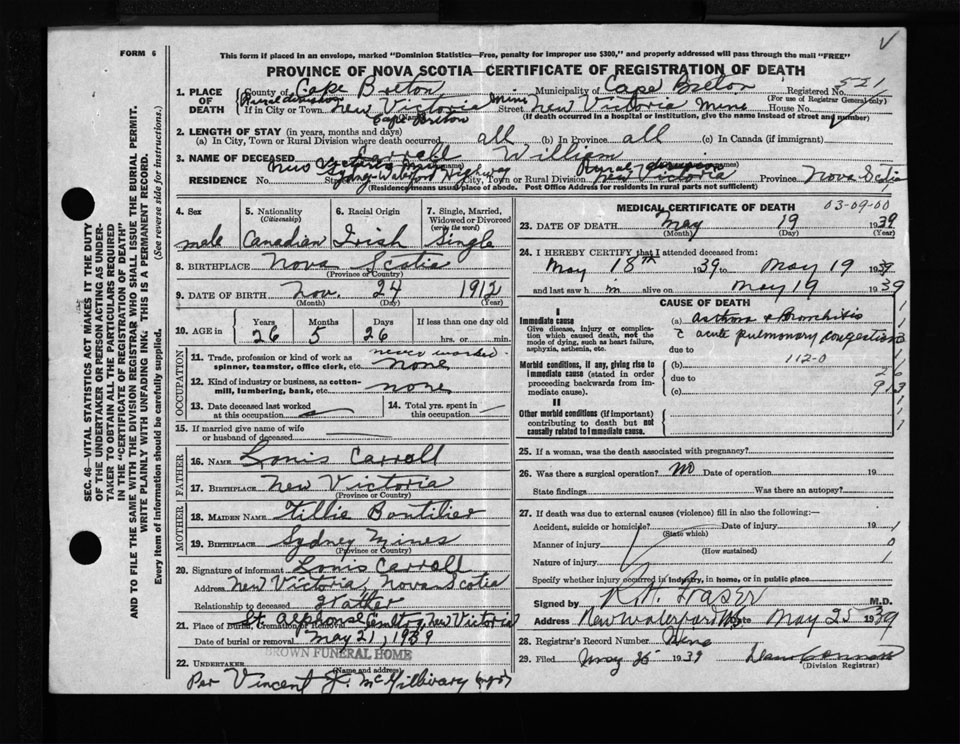 FORM 6
This form if placed in an envelope, marked "Dominion Statistics—Free, penalty for improper use $300," and properly addressed will pass through the mail "FREE"
PROVINCE OF NOVA SCOTIA—CERTIFICATE OF REGISTRATION OF DEATH
SEC. 46—VITAL STATISTICS ACT MAKES IT THE DUTY
OF THE UNDERTAKER OR PERSON ACTING AS UNDER-
TAKER TO OBTAIN ALL THE PARTICULARS REQUIRED
IN THE "CERTIFICATE OF REGISTRATION OF DEATH"
AND TO FILE THE SAME WITH THE DIVISION REGISTRAR WHO SHALL ISSUE THE BURIAL PERMIT.
WRITE PLAINLY WITH UNFADING INK. THIS IS A PERMANENT RECORD.
Every item of information should be carefully supplied. (See reverse side for instructions.)
1. PLACE OF DEATH County of Cape Breton Municipality of Cape Breton Registered No. 521
(For use of Registrar General only)
If in City or Town New Victoria Mine Street New Victoria Mine House No.
Cape Breton (If death occurred in a hospital or institution, give the name instead of street and number)
2. LENGTH OF STAY (in years, months and days)
(a) In City, Town or Rural Division where death occurred all (b) In Province all (c) In Canada (if immigrant)
3. NAME OF DECEASED Carroll William
RESIDENCE No. Street Highway City, Town or Rural Division New Victoria Province Nova Scotia
(Residence means usual place of abode. Post Office Address for residents in rural parts not sufficient)
4. Sex male
5. Nationality (Citizenship) Canadian
6. Racial Origin Irish
7. Single, Married, Widowed or Divorced (write the word) Single
8. BIRTHPLACE Nova Scotia
(Province or Country)
9. DATE OF BIRTH Nov. 24 1912
(Month) (Day) (Year)
10. AGE in Years 26 Months 5 Days 26 If less than one day old hrs. or min.
OCCUPATION
11. Trade, profession or kind of work as spinner, teamster, office clerk, etc. never worked none
12. Kind of industry or business, as cotton-mill, lumbering, bank, etc. none
13. Date deceased last worked at this occupation
14. Total yrs. spent in this occupation
15. If married give name of wife or husband of deceased
FATHER
16. NAME Louis Carroll
17. BIRTHPLACE New Victoria
(Province or Country)
MOTHER
18. MAIDEN NAME Tillie Boutilier
19. BIRTHPLACE Sydney Mines
(Province or Country)
20. Signature of informant Louis Carroll
Address New Victoria, Nova Scotia
Relationship to deceased Father
21. Place of Burial, Cremation or Removal St. Alphonse Cemetery New Victoria
Date of burial or removal May 21, 1939
BROWN FUNERAL HOME
22. UNDERTAKER
(Name and address)
Per Vincent J. McGillivary
MEDICAL CERTIFICATE OF DEATH 03-09-00
23. DATE OF DEATH May 19 1939
(Month) (Day) (Year)
24. I HEREBY CERTIFY that I attended deceased from:
May 18th 1939 to May 19 1939
and last saw h m alive on May 19 1939
CAUSE OF DEATH
I
Immediate cause (a) asthma & Bronchitis
Give disease, injury or complication which caused death, not the mode of dying, such as heart failure, asphyxia, asthenia, etc.
acute pulmonary congestion
due to
112-0
Morbid conditions, if any, giving rise to immediate cause (stated in order proceeding backwards from immediate cause).
(b)
due to
(c)
II
Other morbid conditions (if important) contributing to death but not causally related to immediate cause.
25. If a woman, was the death associated with pregnancy?
26. Was there a surgical operation? No Date of operation 19
State findings Was there an autopsy?
27. If death was due to external causes (violence) fill in also the following:—
Accident, suicide or homicide? Date of injury 19
(State which)
Manner of injury
(How sustained)
Nature of injury
Specify whether injury occurred in industry, in home, or in public place
Signed by Fraser M.D.
Address New Waterford NS Date May 25 1939
28. Registrar's Record Number Nine
29. Filed May 26 1939
(Division Registrar)